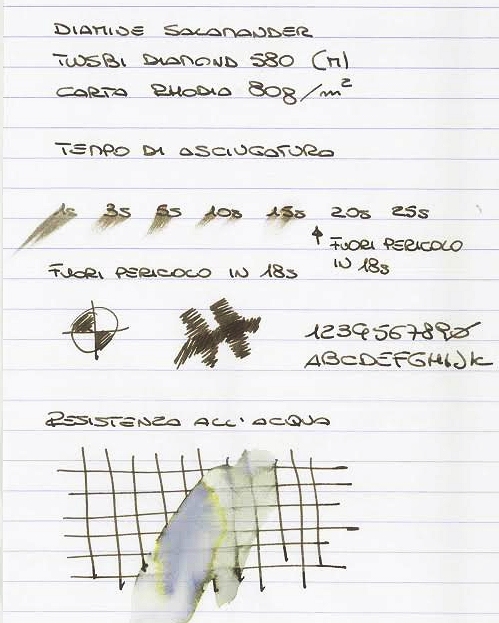 DIAMINE SALAMANDER
TWSBI DIAMOND 580 (M)
CARTA RHODIA 80g/m²
TEMPO DI ASCIUGATURA
1s 3s 5s 10s 15s 20s 25s
↑ FUORI PERICOLO
IN 18s
FUORI PERICOLO IN 18s
1234567890
ABCDEFGHIJK
RESISTENZA ALL'ACQUA